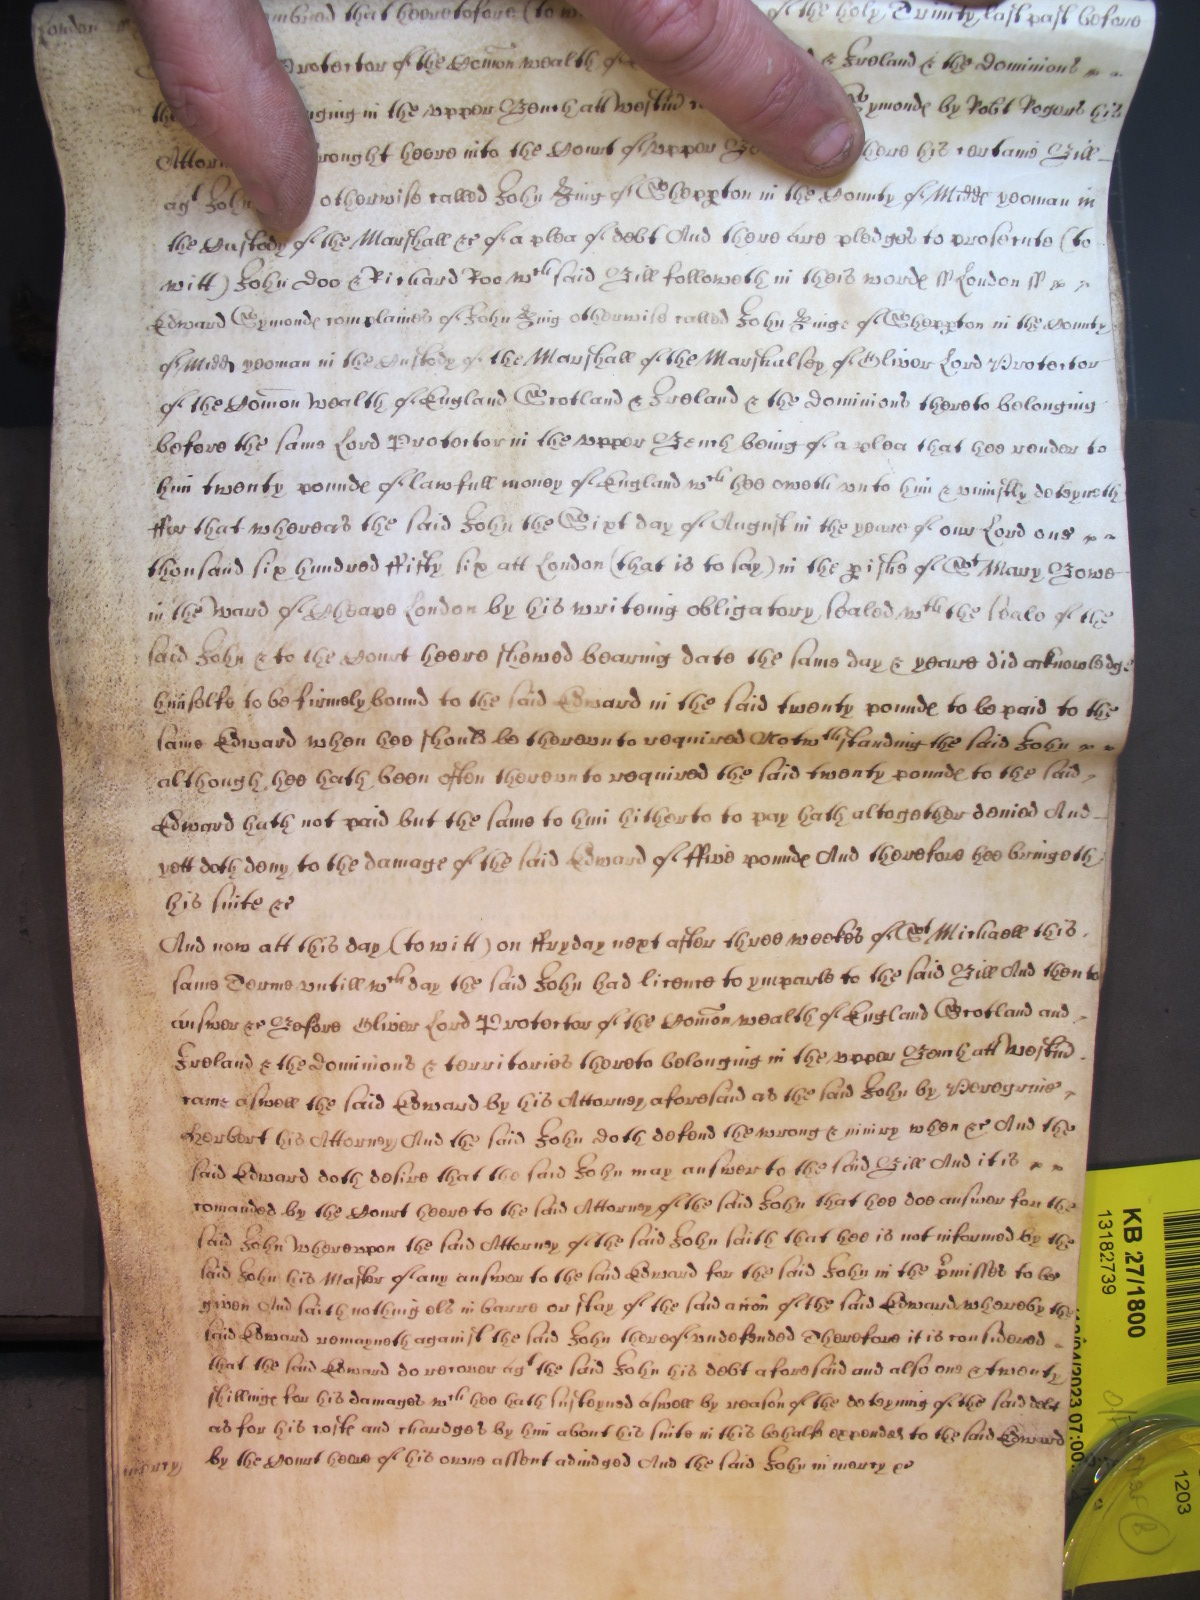 London mbred that heeretofore (to w of the holy Trinity last past before
Protector of the Comon wealth of & Ireland & the Dominions
the nging in the vpper Bench att Westm̃ ymonds by Robt Rogers his
Attorn rought heere into the Court of vpper here his certaine Bill
agt John otherwise called John King of Sheppton in the County of Midd yeoman in
the Custody of the Marshall &c of a plea of debt And there are pledges to prosecute (to
witt) John Doo & Richard Roo wch said Bill followeth in theis words ss London ss
Edward Symonds complaines of John King otherwise called John Kinge of Sheppton in the County
of Midd yeoman in the Custody of the Marshall of the Marshalsey of Oliver Lord Protector
of the Comon Wealth of England Scotland & Ireland & the Dominions thereto belonging
before the same Lord Protector in the vpper Bench being of a plea that hee render to
him twenty pounds of lawfull money of England wch hee oweth vnto him & vniustly deteyneth
ffor that whereas the said John the Sixt day of August in the yeare of our Lord one
thousand six hundred ffifty six att London (that is to say) in the pishe of St Mary Bowe
in the Ward of Cheape London by his writeing obligatory sealed wth the seale of the
said John & to the Court heere shewed bearing date the same day & yeare did acknowledge
himselfe to be firmely bound to the said Edward in the said twenty pounds to be paid to the
same Edward when hee should be therevnto required Notwthstanding the said John
although hee hath been often therevnto required the said twenty pounds to the said
Edward hath not paid but the same to him hitherto to pay hath altogether denied And
yett doth deny to the damage of the said Edward of ffive pounds And therefore hee bringeth
his suite &c
And now att this day (to witt) on ffryday next after three weekes of St Michaell this
same Terme vntill wch day the said John had licence to ymparle to the said Bill And then to
answer &c Before Oliver Lord Protector of the Comon wealth of England Scotland and
Ireland & the Dominions & territories thereto belonging in the vpper Bench att Westm̃
came aswell the said Edward by his Attorney aforesaid as the said John by Peregrine
Herbert his Attorney And the said John doth defend the wrong & iniury when &c And the
said Edward doth desire that the said John may answer to the said Bill And it is
comanded by the Court heere to the said Attorney of the said John that hee doe answer for the
said John Wherevpon the said Attorney of the said John saith that hee is not informed by the
said John his Master of any answer to the said Edward for the said John in the p̃misses to be
given And saith nothing els in barre or stay of the said acc̃on of the said Edward whereby the
said Edward remayneth against the said John thereof vndefended Therefore it is considered
that the said Edward do recover agt the said John his debt aforesaid and also one & twenty
shillings for his damages wch hee hath susteyned aswell by reason of the deteyning of the said debt
as for his costs and chardges by him about his suite in this behalfe expended to the said Edward
by the Court heere of his owne assent adiudged And the said John in mercy &c
mercy
KB 27/1800
13182739
2023 07:00
1203